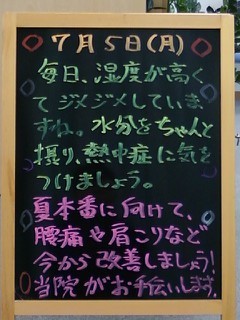 7月5日(月)
毎日、湿度が高く
てジメジメしていま
すね。水分をちゃんと
摂り、熱中症に気を
つけましょう。
夏本番に向けて、
腰痛や肩こりなど
今から改善しましょう!
当院がお手伝いします。